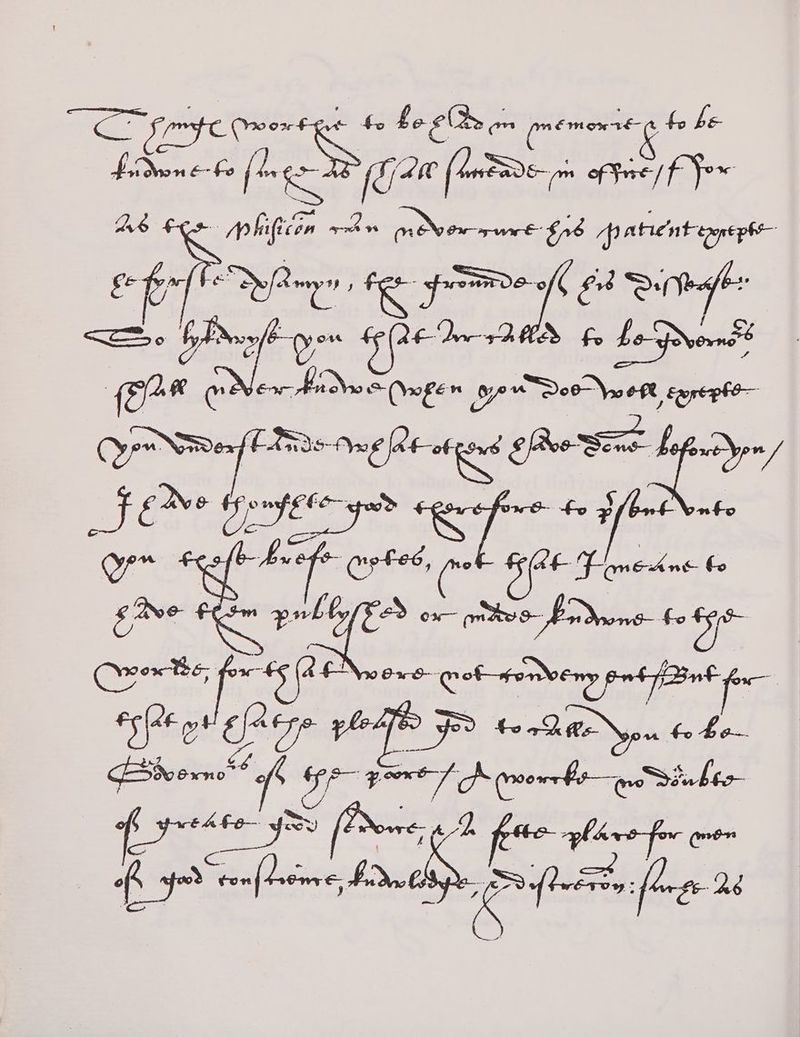 Thinge worthie to be hAd in memorie & to be
knowne to suche As shAll succeade in office / ffor
As the phisicõn cAn never cure his patient excepte
he fyrste exAmyn, the grounde off his Dissease:
So lykewyse you thAt Ar cAlled to be governors
shAll never knowe when you Doe well, excepte
you vnderstAnde whAt others hAve Done before you /
I hAve thoughte good therefore to p̃sent vnto
you these brefe notes, not thAt I meAne to
hAve them publyshed or mAde knowne to the
worlde, for thAt were not convenyent / But for
thAt yt hAthe pleAsed god to cAlle you to be
Governors off the poore / A worcke no Doubte
off greAte good servuice, & A fytte plAce for men
off good conscience, knowledge, & discrecõn: suche As